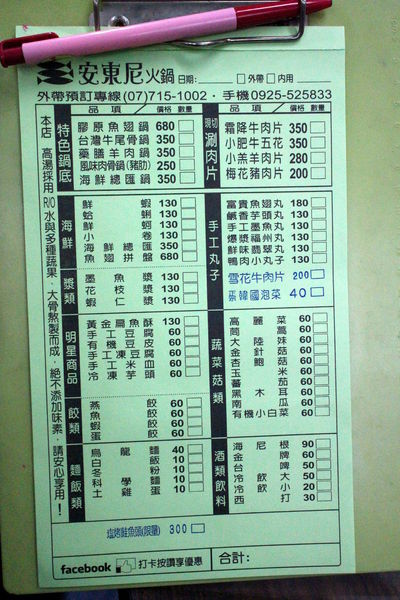 安東尼火鍋 日期: 外帶 內用
外帶預訂專線(07)715-1002・手機0925-525833
本店高湯採用R/O水與多種蔬果、大骨熬製而成，絕不添加味素，請安心享用！
品項 價格 數量
特色鍋底
膠原魚翅鍋 680
台灣牛尾骨鍋 350
藥膳羊肉鍋 350
風味肉骨鍋(豬肋) 250
海鮮總匯鍋 350
海鮮
鮮蝦 130
蛤蜊 130
鮮蚵 130
小卷 130
海鮮總匯 350
魚翅拼盤 680
漿類
墨魚漿 130
花枝漿 130
蝦仁漿 130
明星商品
黃金扁魚酥 130
手工豆腐 60
有機豆皮 60
手工凍豆腐 60
手工米血 60
冷凍芋頭 60
餃類
燕餃 60
魚餃 60
蝦餃 60
蛋餃 60
麵飯類
烏龍麵 40
白飯 10
冬粉 10
科學麵 10
土雞蛋 10
品項 價格 數量
現切涮肉片
霜降牛肉片 350
小肥牛五花 350
小羔羊肉片 280
梅花豬肉片 200
手工丸子
富貴魚翅丸 180
鹹香芋頭丸 130
手工墨魚丸 130
爆漿福州丸 130
鮮味翡翠丸 130
鴨肉小丸子 130
雪花牛肉片 200
張韓國泡菜 40
蔬菜菇類
高麗菜 60
茼蒿 60
大陸妹 60
金針菇 60
杏鮑菇 60
玉米 60
蕃茄 60
黑木耳 60
南瓜 60
有機小白菜 60
酒類飲料
海尼根 90
金牌 60
台啤 50
冷飲大 50
冷飲小 20
西打 30
塩烤鮭魚頭(限量) 300
facebook 打卡按讚享優惠
合計：